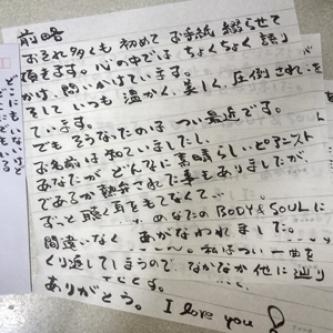 前略
おそれ多くも 初めて お手紙 綴らせて
頂きます。心の中では ちょくちょく 語り
かけ、問いかけています。
そして いつも 温かく、美しく、圧倒され
ています。
でも そうなったのは つい最近です。
お名前は 知っていましたし、
あなたが どんなに 素晴らしいピアニスト
であるか 熱弁された事も ありましたが、
ずっと 聴く耳を もてなくて・・・
あなたの BODY & SOUL に
間違いなく あがなわれました。
私は つい 一曲を
くり返してしまうので なかなか 他に 辿り
ありがとう。 I love you
どこにもいないけど
どこにでもいる